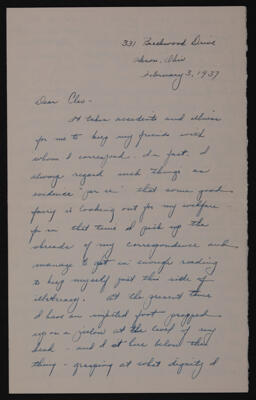 331 Beechwood Drive
Akron, Ohio
February 3, 1937
Dear Cleo -
It takes accidents and illness
for me to keep my friends with
whom I correspond. In fact, I
always regard such things as
evidence "per se" that some good
fairy is looking out for my welfare
for in that time I pick up the
threads of my correspondence and
manage to get in enough reading
to keep myself just this side of
illiteracy. At the present time
I have an injured foot propped
up on a pillow at the level of my
head - and I sit here below this
thing - grasping at what dignity I